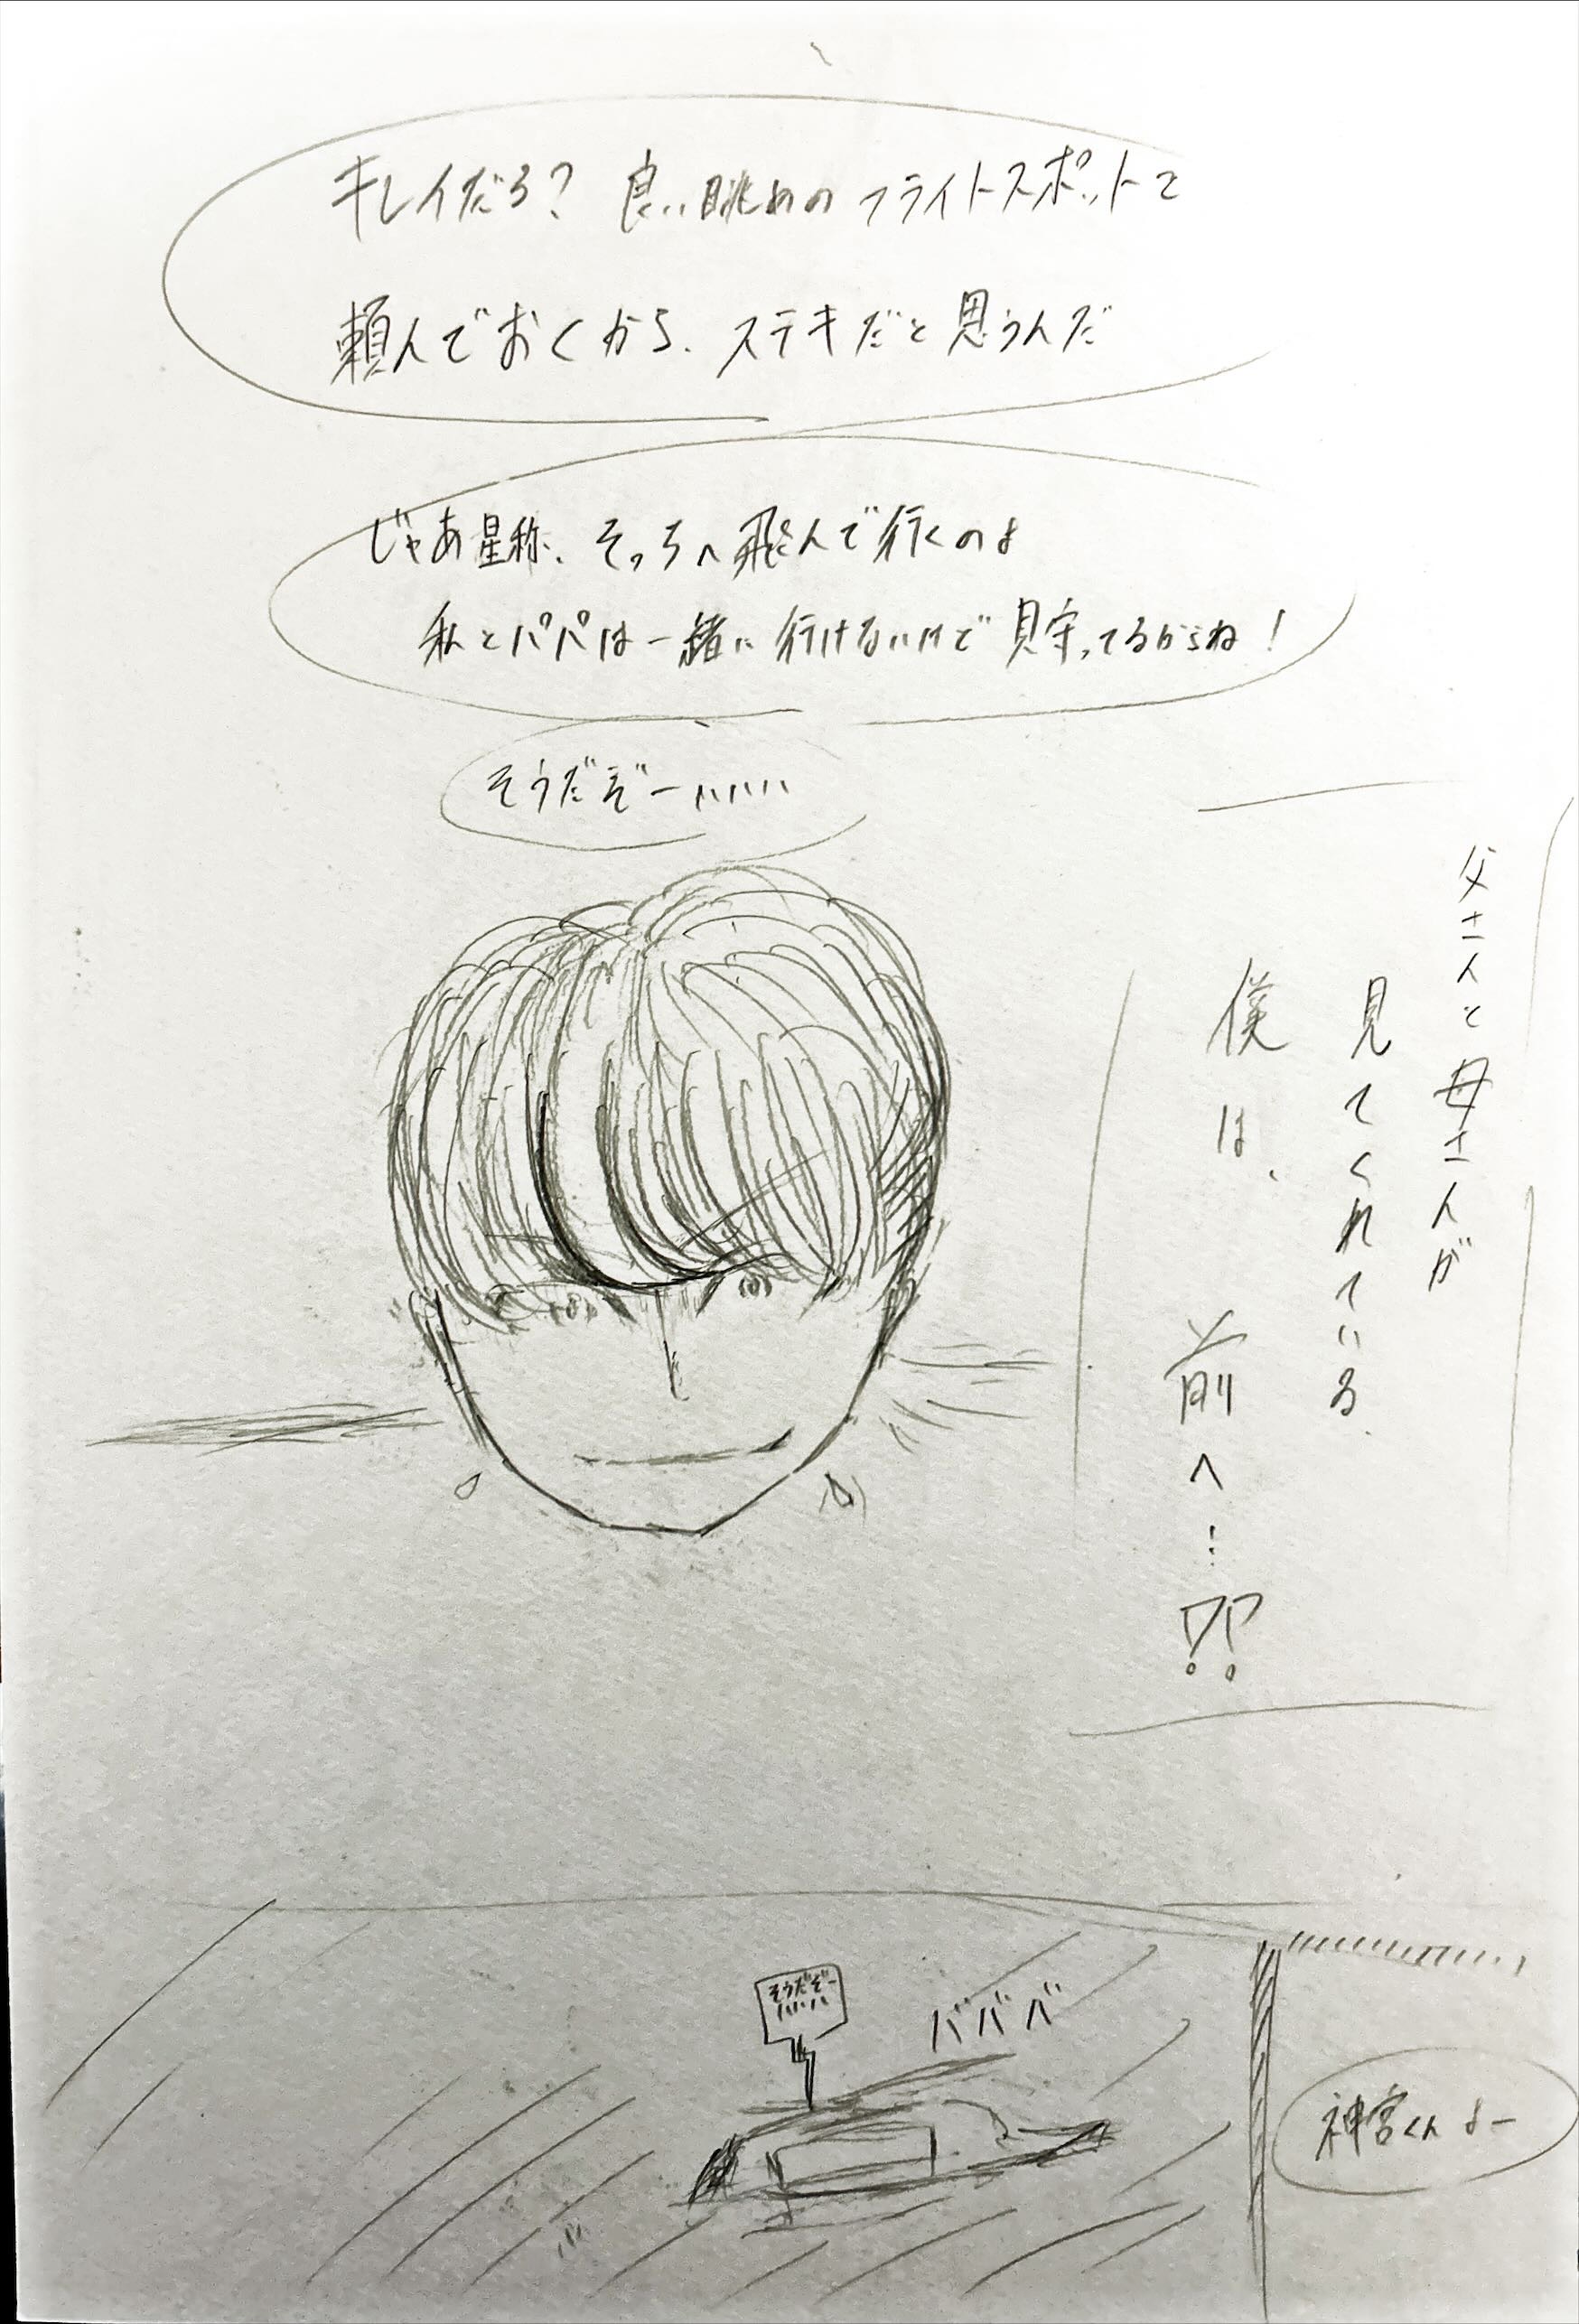 キレイだろ? 良い眺めのフライトスポットで
頼んでおくから、ステキだと思うんだ
じゃあ星称、そっちへ飛んで行くのよ
私とパパは一緒に行けないけど見守ってるからね!
そうだぞーハハハハ
父さんと母さんが
見てくれている、
僕は、
前へ…??
そうだぞー
ハハハハ
バババ
神宮くんよー